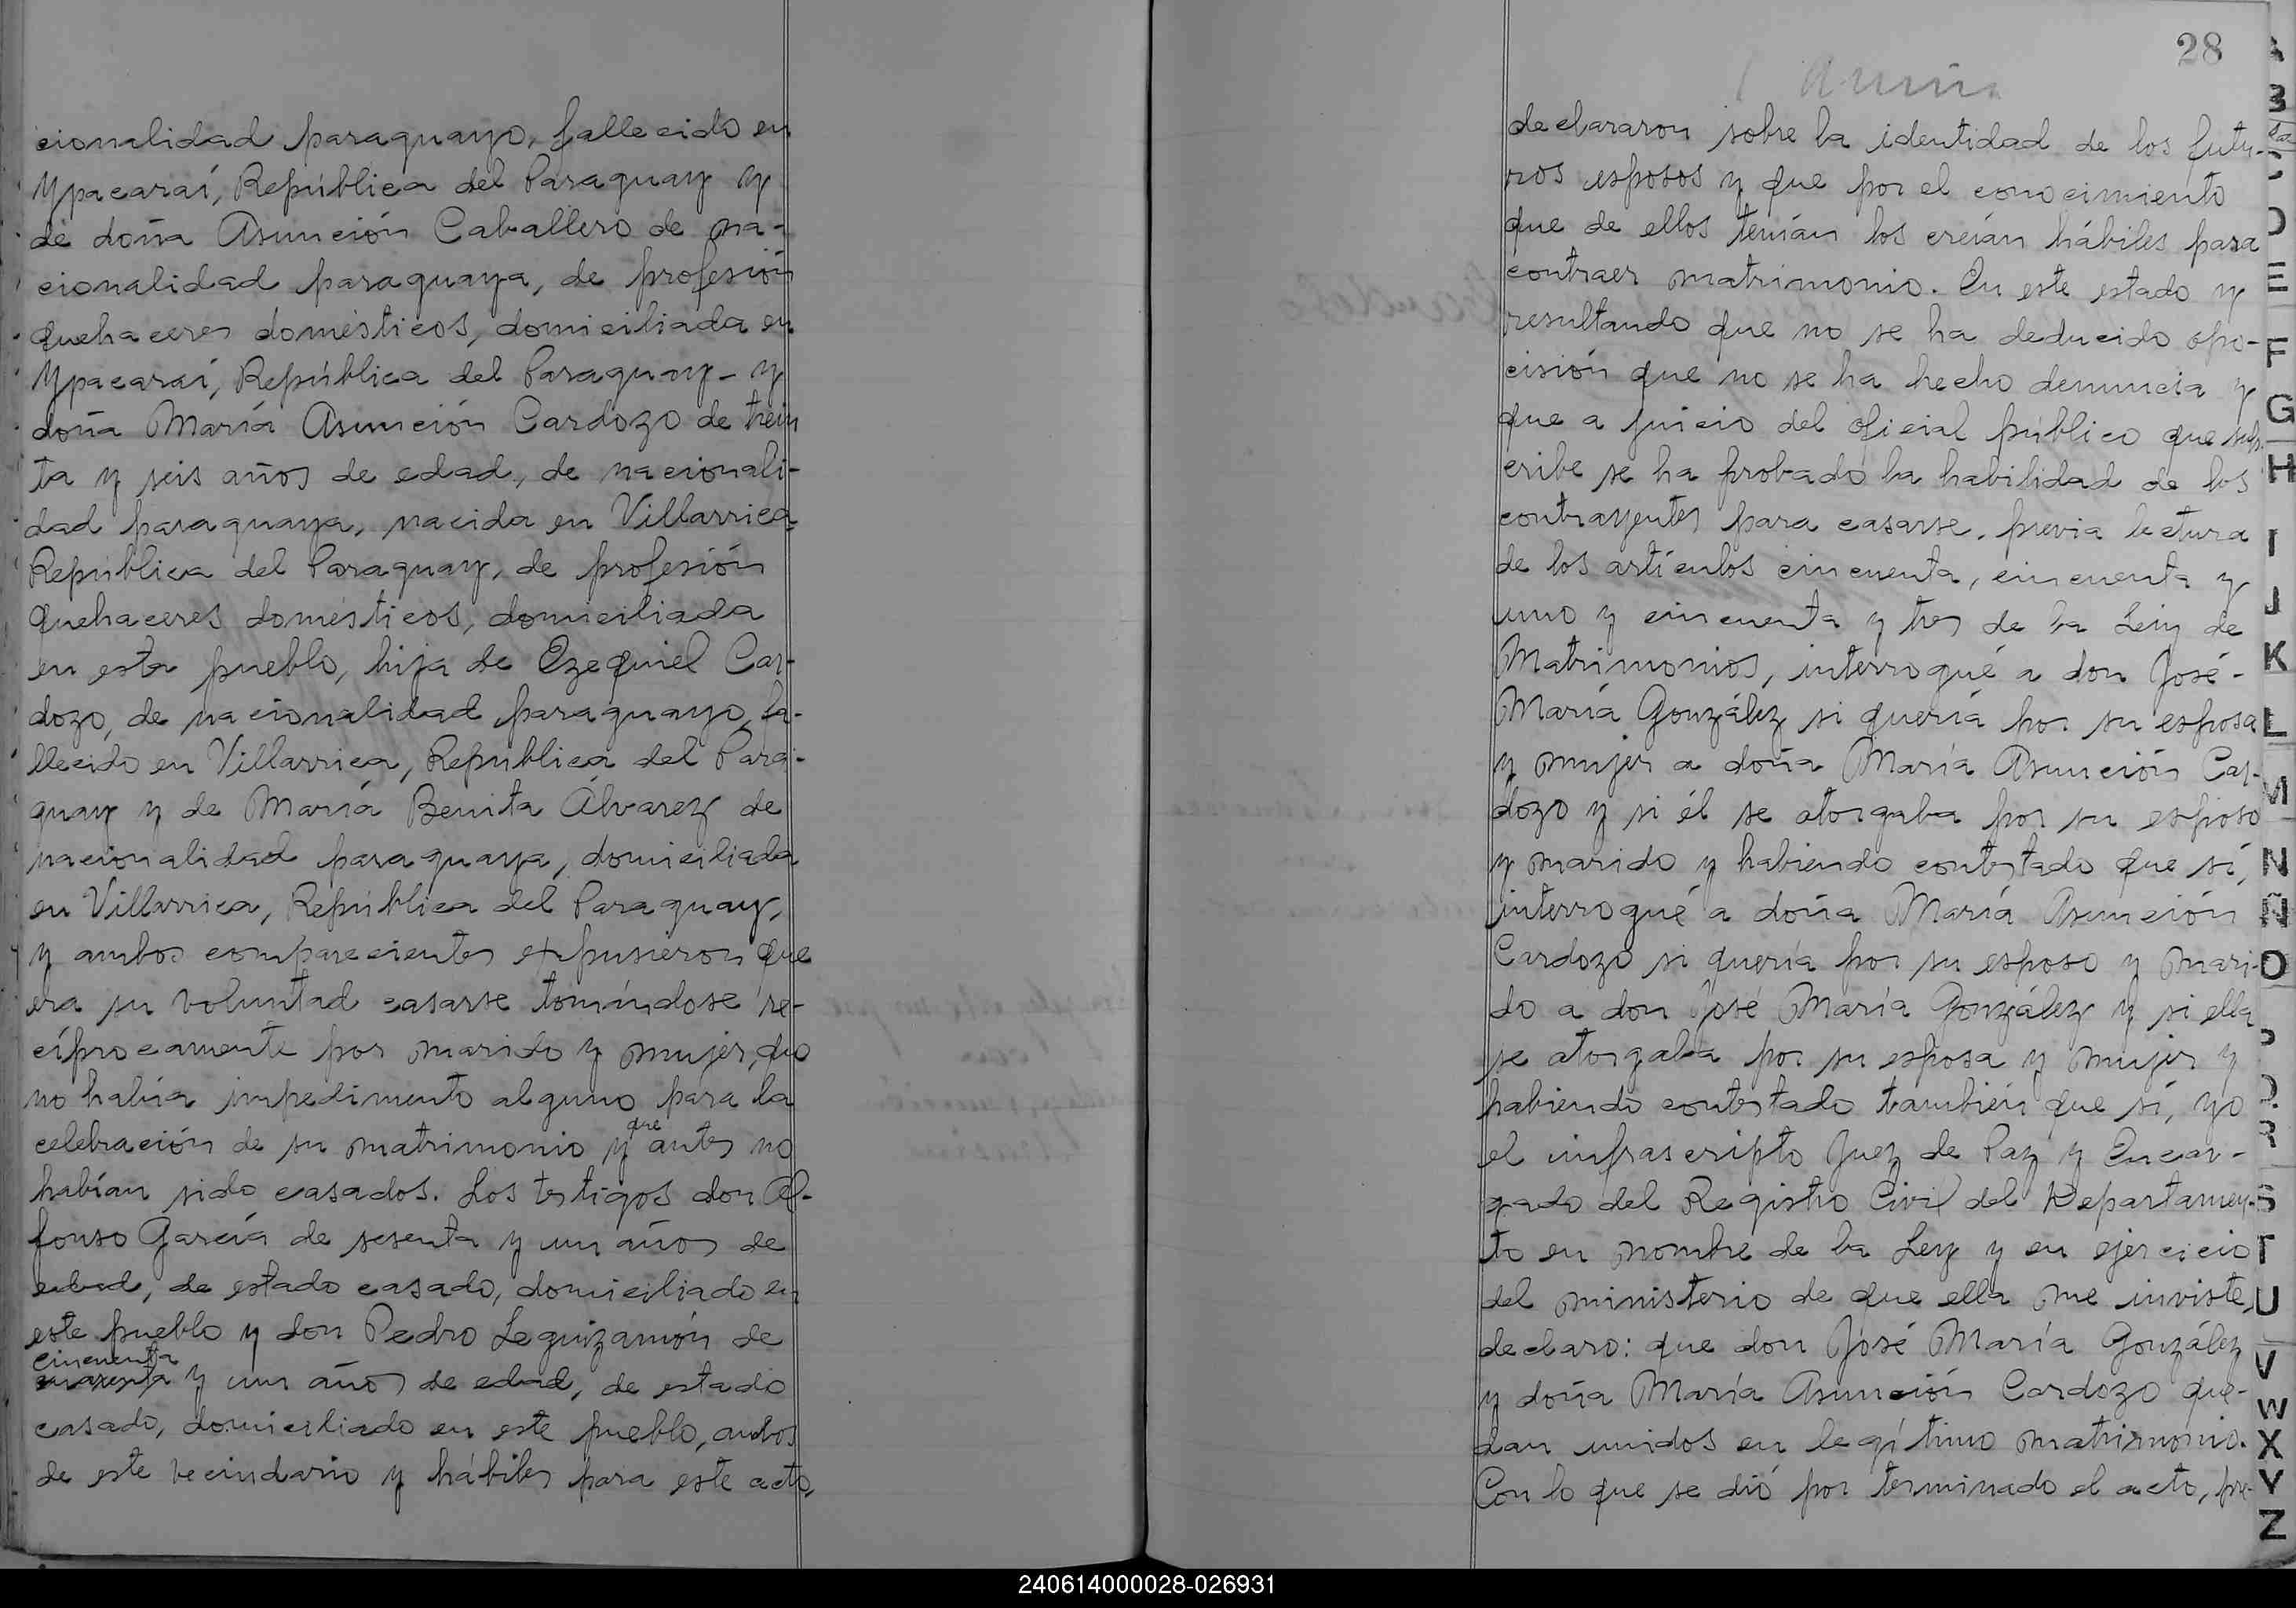 cionalidad paraguayo, fallecido en
Ypacaraí, República del Paraguay y
de doña Asunción Caballero de na-
cionalidad paraguaya, de profesión
quehaceres domésticos, domiciliada en
Ypacaraí, República del Paraguay - y
doña María Asunción Cardozo de trein
ta y seis años de edad, de nacionali-
dad paraguaya, nacida en Villarrica,
República del Paraguay, de profesión
quehaceres domésticos, domiciliada
en este pueblo, hija de Ezequiel Car-
dozo, de nacionalidad paraguayo, fa-
llecido en Villarrica, República del Para-
guay y de María Benita Álvarez de
nacionalidad paraguaya, domiciliada
en Villarrica, República del Paraguay,
y ambos comparecientes expusieron que
era su voluntad casarse tomándose re-
cíprocamente por marido y mujer, que
no había impedimento alguno para la
celebración de su matrimonio y que antes no
habían sido casados. Los testigos don Al-
fonso García de sesenta y un años de
edad, de estado casado, domiciliado en
este pueblo y don Pedro Leguizamón de
cincuenta
y un años de edad, de estado
casado, domiciliado en este pueblo, ambos
de este vecindario y hábiles para este acto,
28
declararon sobre la identidad de los futu-
ros esposos y que por el conocimiento
que de ellos tenían los creían hábiles para
contraer matrimonio. En este estado y
resultando que no se ha deducido opo-
cisión que no se ha hecho denuncia y
que a juicio del oficial público que sus
cribe se ha probado la habilidad de los
contrayentes para casarse, previa lectura
de los artículos cincuenta, cincuenta y
uno y cincuenta y tres de la Ley de
Matrimonios, interrogué a don José-
María González si quería por su esposa
y mujer a doña María Asunción Car-
dozo y si él se otorgaba por su esposo
y marido y habiendo contestado que sí,
interrogué a doña María Asunción
Cardozo si quería por su esposo y mari-
do a don José María González y si ella
se otorgaba por su esposa y mujer y
habiendo contestado también que sí, yo
el infrascripto Juez de Paz y Encar-
gado del Registro Civil del Departamen-
to en nombre de la Ley y en ejercicio
del ministerio de que ella me inviste,
declaro: que don José María González
y doña María Asunción Cardozo que-
dan unidos en legítimo matrimonio.
Con lo que se dió por terminado el acto, pre-
B
D
E
F
G
H
I
J
K
L
M
N
Ñ
O
P
Q
R
S
T
U
V
W
X
Y
Z
240614000028-026931